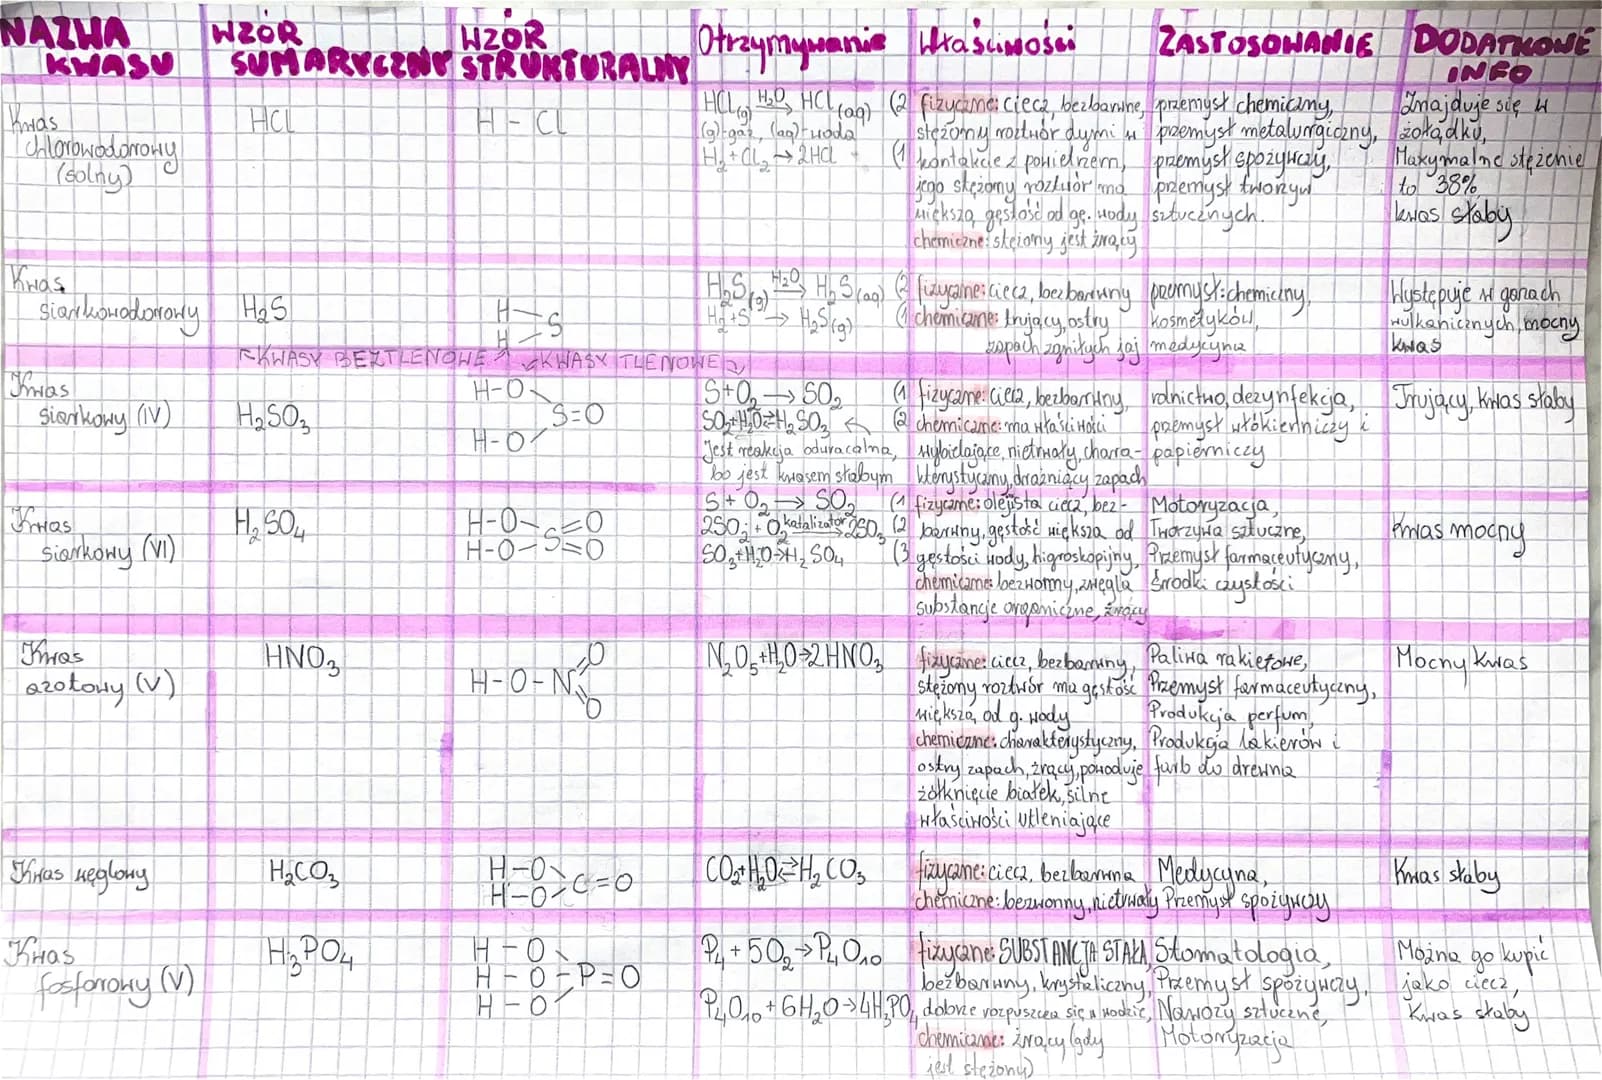 NAZWA KWASU
WZÓR SUMARYCZNY
WZÓR STRUKTURALNY
Otrzymywanie
Właściwości
ZASTOSOWANIE
DODATKOWE INFO
Kwas
chlorowodorowy
(solny)
HCl
H - Cl
HCl(g) H₂O→ HCl(aq) (2
(g)-gaz, (aq)-woda
H₂+Cl₂→2HCl (1
fizyczne: ciecz, bezbarwne,
stężony roztwór dymi w
kontakcie z powietrzem,
jego stężony roztwór ma
większą gęstość od gę. wody
chemiczne: stężony jest żrący
przemysł chemiczny,
przemysł metalurgiczny,
przemysł spożywczy,
przemysł tworzyw
sztucznych.
Znajduje się w
żołądku,
Maxymalne stężenie
to 38%
kwas słaby
Kwas
siarkowodorowy
H₂S
H
S
H
H₂S(g) H₂O→ H₂S(aq) (2
H₂+S → H₂S(g) (1
fizyczne: ciecz, bezbarwny
chemiczne: trujący, ostry
zapach zgniłych jaj
przemysł: chemiczny,
kosmetyków,
medycyna
Występuje w gazach
wulkanicznych, mocny
kwas
KWASY BEZTLENOWE
KWASY TLENOWE
Kwas
siarkowy (IV)
H₂SO₃
H-O
S=O
H-O
S+O₂→SO₂ (1
SO₂+H₂O⇄H₂SO₃ (2
Jest reakcja odwracalna,
bo jest kwasem słabym
fizyczne: ciecz, bezbarwny,
chemiczne: ma właściwości
wybielające, nietrwały, chara-
kterystyczny, drażniący zapach
rolnictwo, dezynfekcja,
przemysł włókienniczy i
papierniczy
Trujący, kwas słaby
Kwas
siarkowy (VI)
H₂SO₄
H-O =O
S
H-O =O
S+O₂→SO₂ (1
2SO₂+O₂ katalizator→ 2SO₃ (2
SO₃+H₂O→H₂SO₄ (3
fizyczne: olejista ciecz, bez-
barwny, gęstość większa od
gęstości wody, higroskopijny,
chemiczne: bezwonny, zwęgla
substancje organiczne, żrący
Motoryzacja,
Tworzywa sztuczne,
Przemysł farmaceutyczny,
Środki czystości
Kwas mocny
Kwas
azotowy (V)
HNO₃
O
H-O-N
O
N₂O₅+H₂O→2HNO₃
fizyczne: ciecz, bezbarwny,
stężony roztwór ma gęstość
większą od g. wody
chemiczne: charakterystyczny,
ostry zapach, żrący, powoduje
żółknięcie białek, silne
właściwości utleniające
Paliwa rakietowe,
Przemysł farmaceutyczny,
Produkcja perfum,
Produkcja lakierów i
farb do drewna
Mocny kwas
Kwas węglowy
H₂CO₃
H-O
C=O
H-O
CO₂+H₂O⇄H₂CO₃
fizyczne: ciecz, bezbarwna
chemiczne: bezwonny, nietrwały
Medycyna,
Przemysł spożywczy
Kwas słaby
Kwas
fosforowy (V)
H₃PO₄
H-O
H-O-P=O
H-O
P₄+5O₂→P₄O₁₀
P₄O₁₀+6H₂O→4H₃PO₄
fizyczne: SUBSTANCJA STAŁA,
bezbarwny, krystaliczny,
dobrze rozpuszcza się w wodzie,
chemiczne: żrący (gdy
jest stężony)
Stomatologia,
Przemysł spożywczy,
Nawozy sztuczne,
Motoryzacja
Można go kupić
jako ciecz,
Kwas słaby